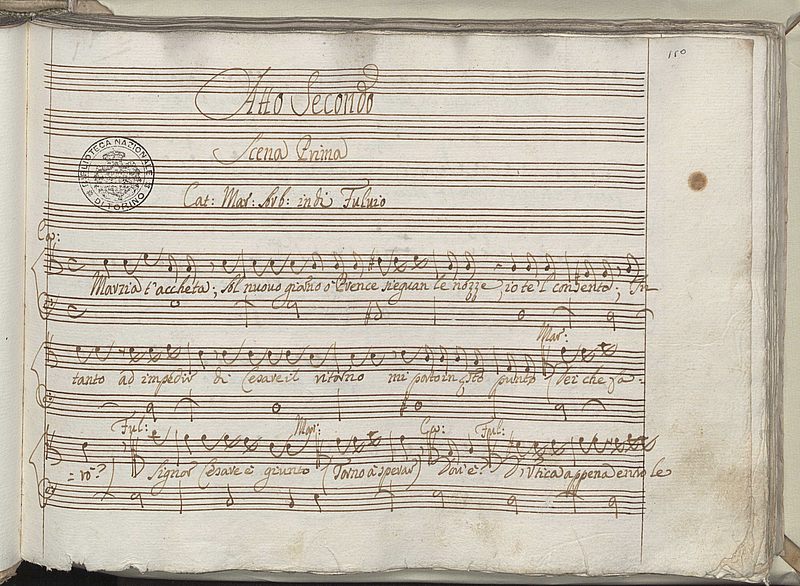 150
Atto Secondo
Scena Prima
BIBLIOTECA NAZIONALE
DI TORINO
Cat: Mar: Arb: indi Fuluio
Cat:
Marzia t'accheta; Al nuouo giorno o Prence sieguan le nozze, io te'l consento; In
Mar:
tanto ad impedir di Cesare il ritorno mi porto in questo punto (Dei che fa-
Ful: Mar: Cat: Ful:
=rò?) Signor Cesare è giunto (Torno à sperar) Dou'è? D'Utica appena entrò le